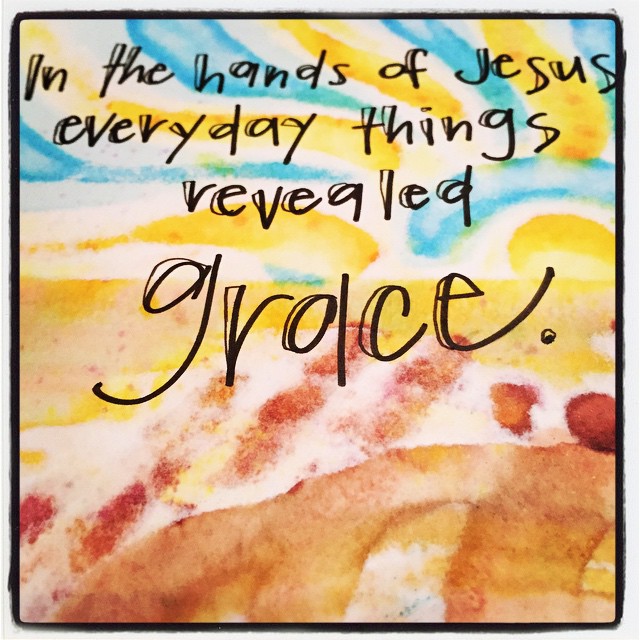 In the hands of Jesus
everyday things
revealed
grace.